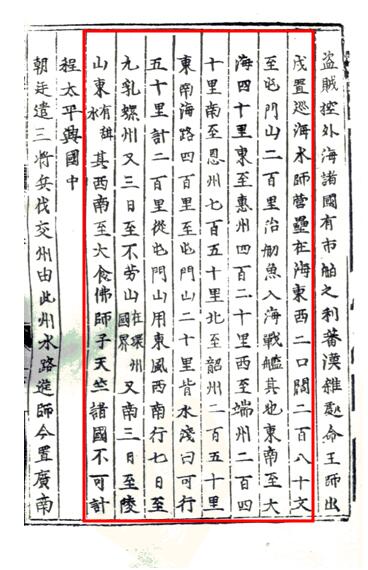 盜賊控外海諸國有市舶之利蕃漢雜處命王師出
戍置巡海水師營壘在海東西二口闊二百八十丈
至屯門山二百里治舠魚入海戰艦其也東南至大
海四十里東至惠州四百二十里西至端州二百四
十里南至恩州七百五十里北至韶州二百五十里
東南海路四百里至屯門山二十里皆水淺日可行
五十里計二百里從屯門山用東風西南行七日至
九乳螺州又三日至不勞山在環州國界又南三日至陵
山東有甜水其西南至大食佛師子天竺諸國不可計
程太平興國中
朝廷遣三將兵伐交州由此州水路進師今置廣南